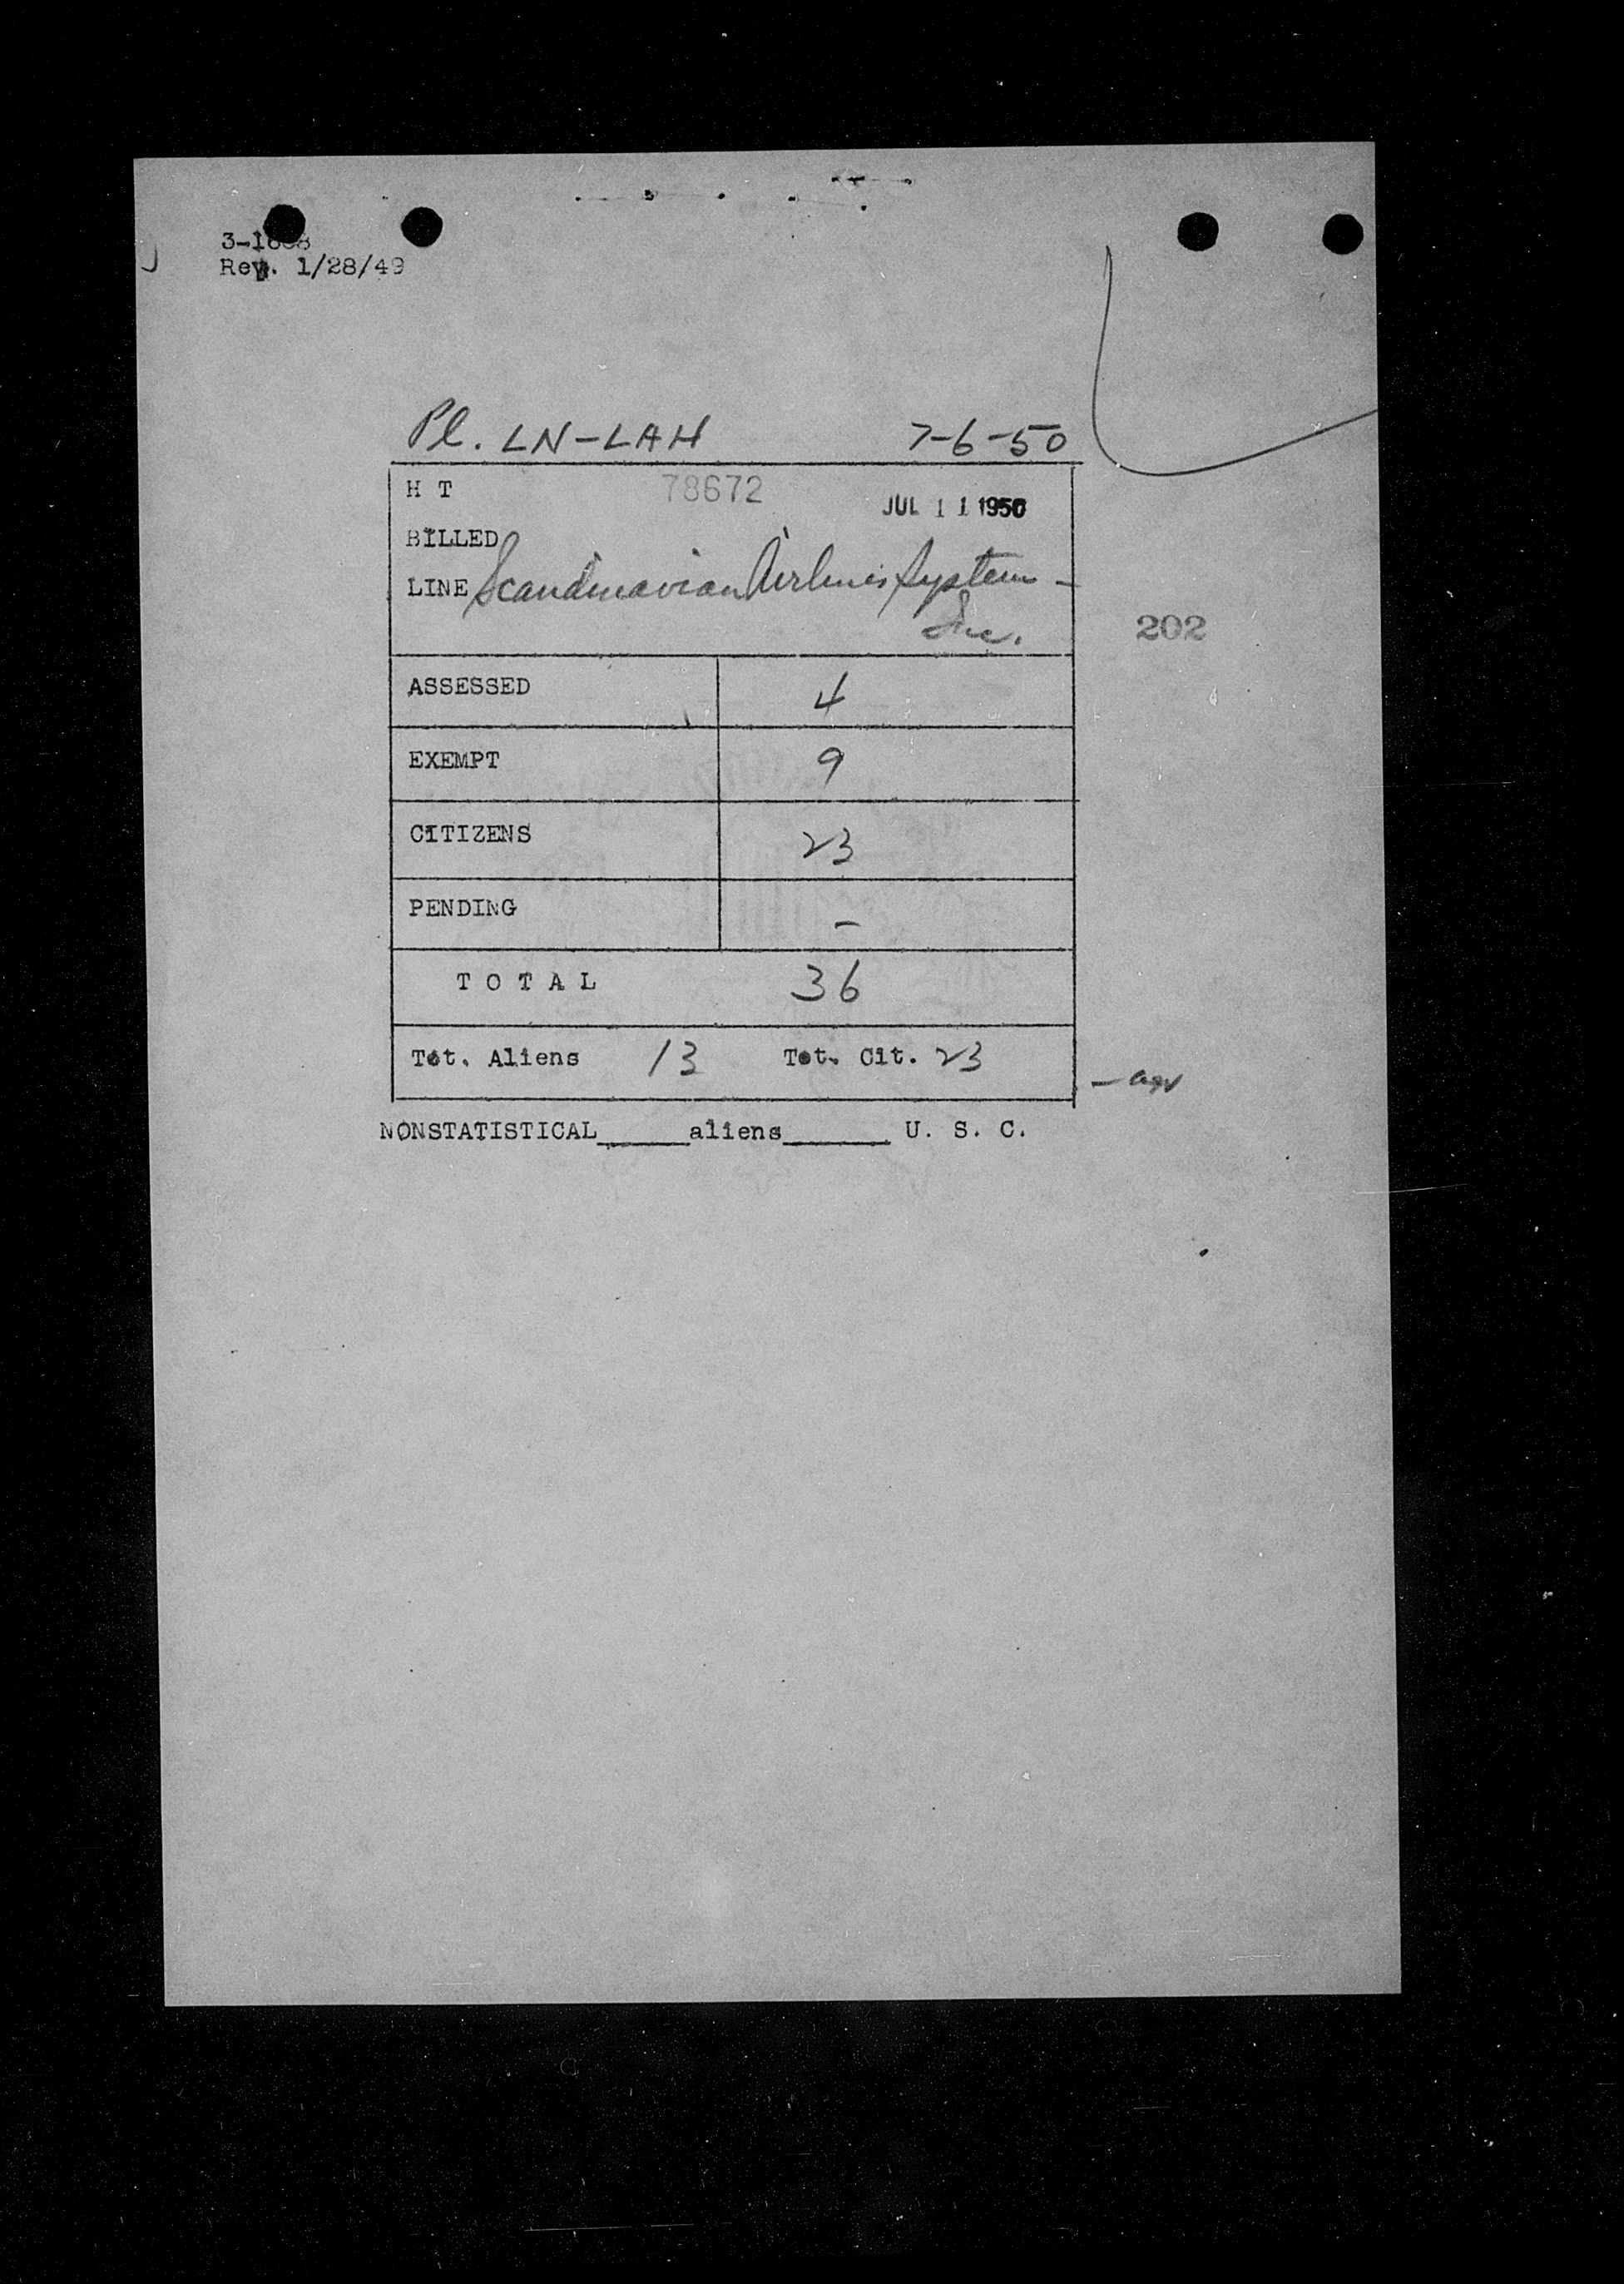 Rev. 1/28/49
Pl. LN-LAH 7-6-50
H T 78672 JUL 11 1950
BILLED
LINE Scandinavian Airlines System -
Inc.
202
ASSESSED 4
EXEMPT 9
CITIZENS 23
PENDING -
T O T A L 36
Tot. Aliens 13 Tot. Cit. 23
NONSTATISTICAL______aliens_______ U. S. C.